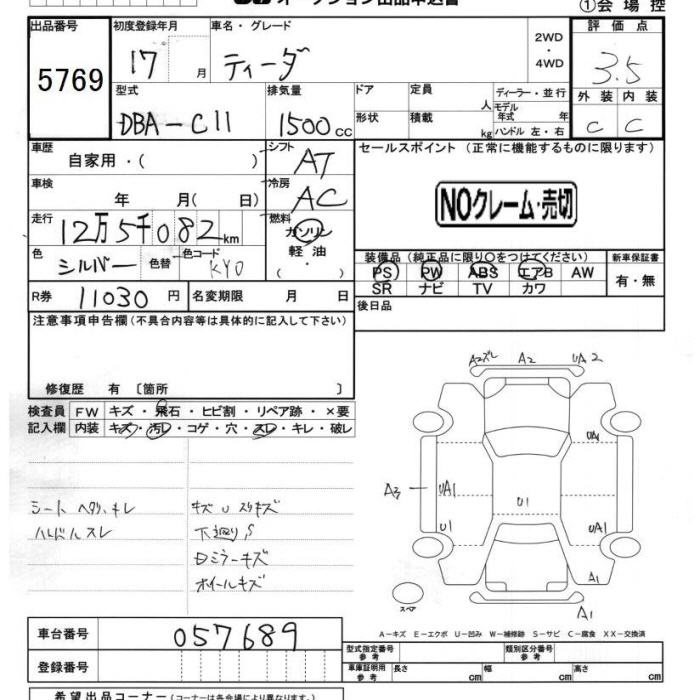 オークション出品申込書
①会場控
出品番号 初度登録年月 車名・グレード 2WD・4WD 評価点
5769 17 月 ティーダ 3.5
型式 排気量 ドア 定員 人 ディーラー・並行 外装 内装
DBA-C11 1500cc 形状 積載 kg モデル年式 年 ハンドル 左・右 C C
車歴 自家用・( ) シフト AT セールスポイント (正常に機能するものに限ります)
車検 年 月( 日) 冷房 AC
NOクレーム・売切
走行 12万5千082km 燃料 ガソリン 軽油 ・( )
色 シルバー 色替 色コード KY0
装備品 (純正品に限り○をつけてください) 新車保証書
PS PW ABS エアB AW 有・無
SR ナビ TV カワ
R券 11030円 名変期限 月 日 後日品
注意事項申告欄 (不具合内容等は具体的に記入して下さい)
修復歴 有 〔箇所 〕
検査員 FW キズ・飛石・ヒビ割・リペア跡・×要
記入欄 内装 キズ・汚レ・コゲ・穴・スレ・キレ・破レ
シート ヘタリ、キレ
ハンドル スレ
キズ U スリキズ
下廻りS
Dミラーキズ
ホイールキズ
A2ズレ A2 UA2
UA1
A3 UA1 U1
U1 UA1
A1
A1
スペア
A-キズ E-エクボ U-凹み W-補修跡 S-サビ C-腐食 XX-交換済
車台番号 057689
登録番号
型式指定番号 参考 類別区分番号 参考
車庫証明用 参考 長さ cm 幅 cm 高さ cm
希望出品コーナー (コーナーは各会場により異なります)